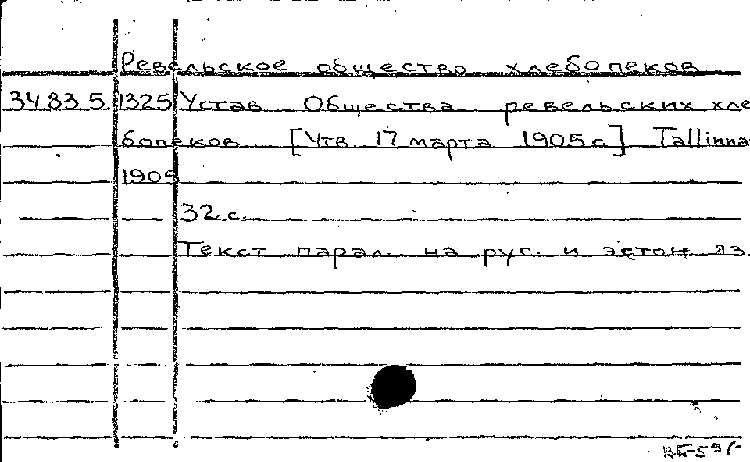 Ревельское общество хлебопеков
34835 1325 Устав Общества ревельских хле
бопеков [Утв. 17 марта 1905 г.] Tallinna
1905
32 с.
Текст парал. на рус. и эстон яз.